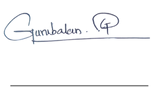 Gurubalan. G